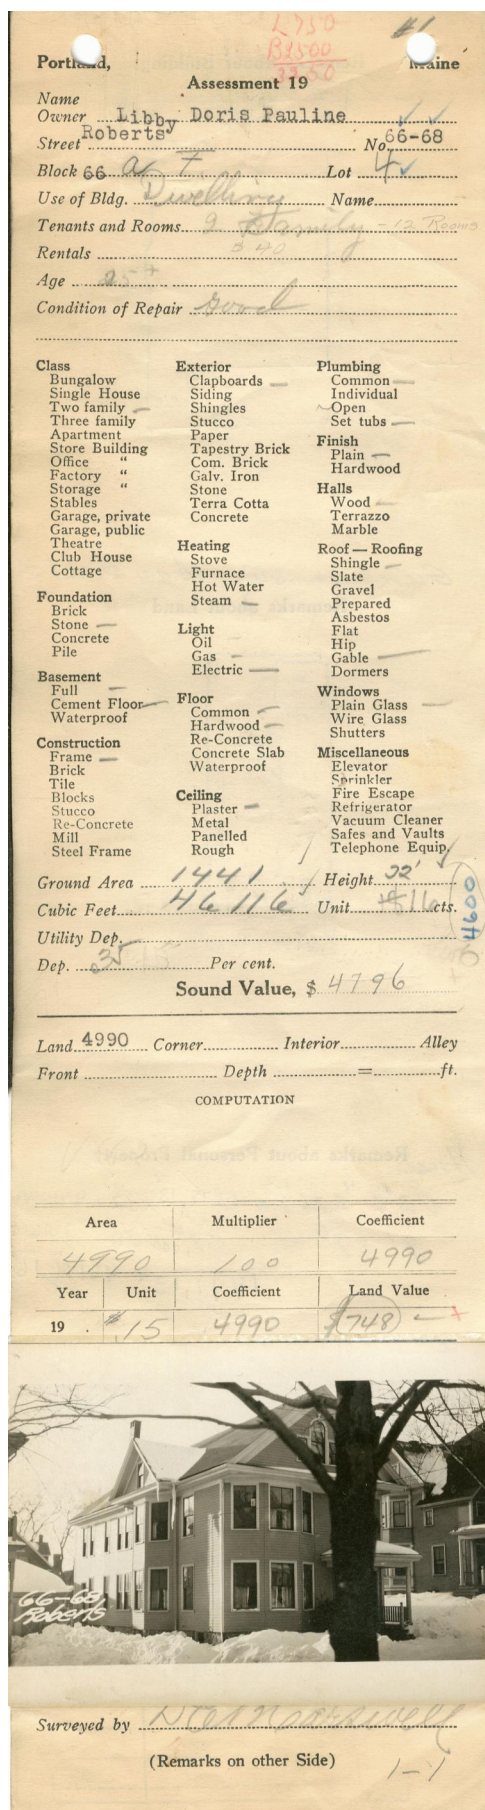 #1
L 750
B 1500
Portland, Maine
Assessment 19
Name
Owner Libby Doris Pauline
Street Roberts No. 66-68
Block 66 a F Lot 4
Use of Bldg. Dwelling Name
Tenants and Rooms 2 Family - 12 Rooms
Rentals 40
Age 25+
Condition of Repair good
Class
Bungalow
Single House
Two family
Three family
Apartment
Store Building
Office "
Factory "
Storage "
Stables
Garage, private
Garage, public
Theatre
Club House
Cottage
Foundation
Brick
Stone
Concrete
Pile
Basement
Full
Cement Floor
Waterproof
Construction
Frame
Brick
Tile
Blocks
Stucco
Re-Concrete
Mill
Steel Frame
Exterior
Clapboards
Siding
Shingles
Stucco
Paper
Tapestry Brick
Com. Brick
Galv. Iron
Stone
Terra Cotta
Concrete
Heating
Stove
Furnace
Hot Water
Steam
Light
Oil
Gas
Electric
Floor
Common
Hardwood
Re-Concrete
Concrete Slab
Waterproof
Ceiling
Plaster
Metal
Panelled
Rough
Plumbing
Common
Individual
Open
Set tubs
Finish
Plain
Hardwood
Halls
Wood
Terrazzo
Marble
Roof — Roofing
Shingle
Slate
Gravel
Prepared
Asbestos
Flat
Hip
Gable
Dormers
Windows
Plain Glass
Wire Glass
Shutters
Miscellaneous
Elevator
Sprinkler
Fire Escape
Refrigerator
Vacuum Cleaner
Safes and Vaults
Telephone Equip.
Ground Area 1441 Height 32'
Cubic Feet 46116 Unit 16 cts.
4600
Utility Dep.
Dep. 35 Per cent.
Sound Value, $ 4796
Land 4990 Corner Interior Alley
Front Depth = ft.
COMPUTATION
Area Multiplier Coefficient
4990 100 4990
Year Unit Coefficient Land Value
19 $.15 4990 $748
66-68
Roberts
Surveyed by
(Remarks on other Side)
1-1